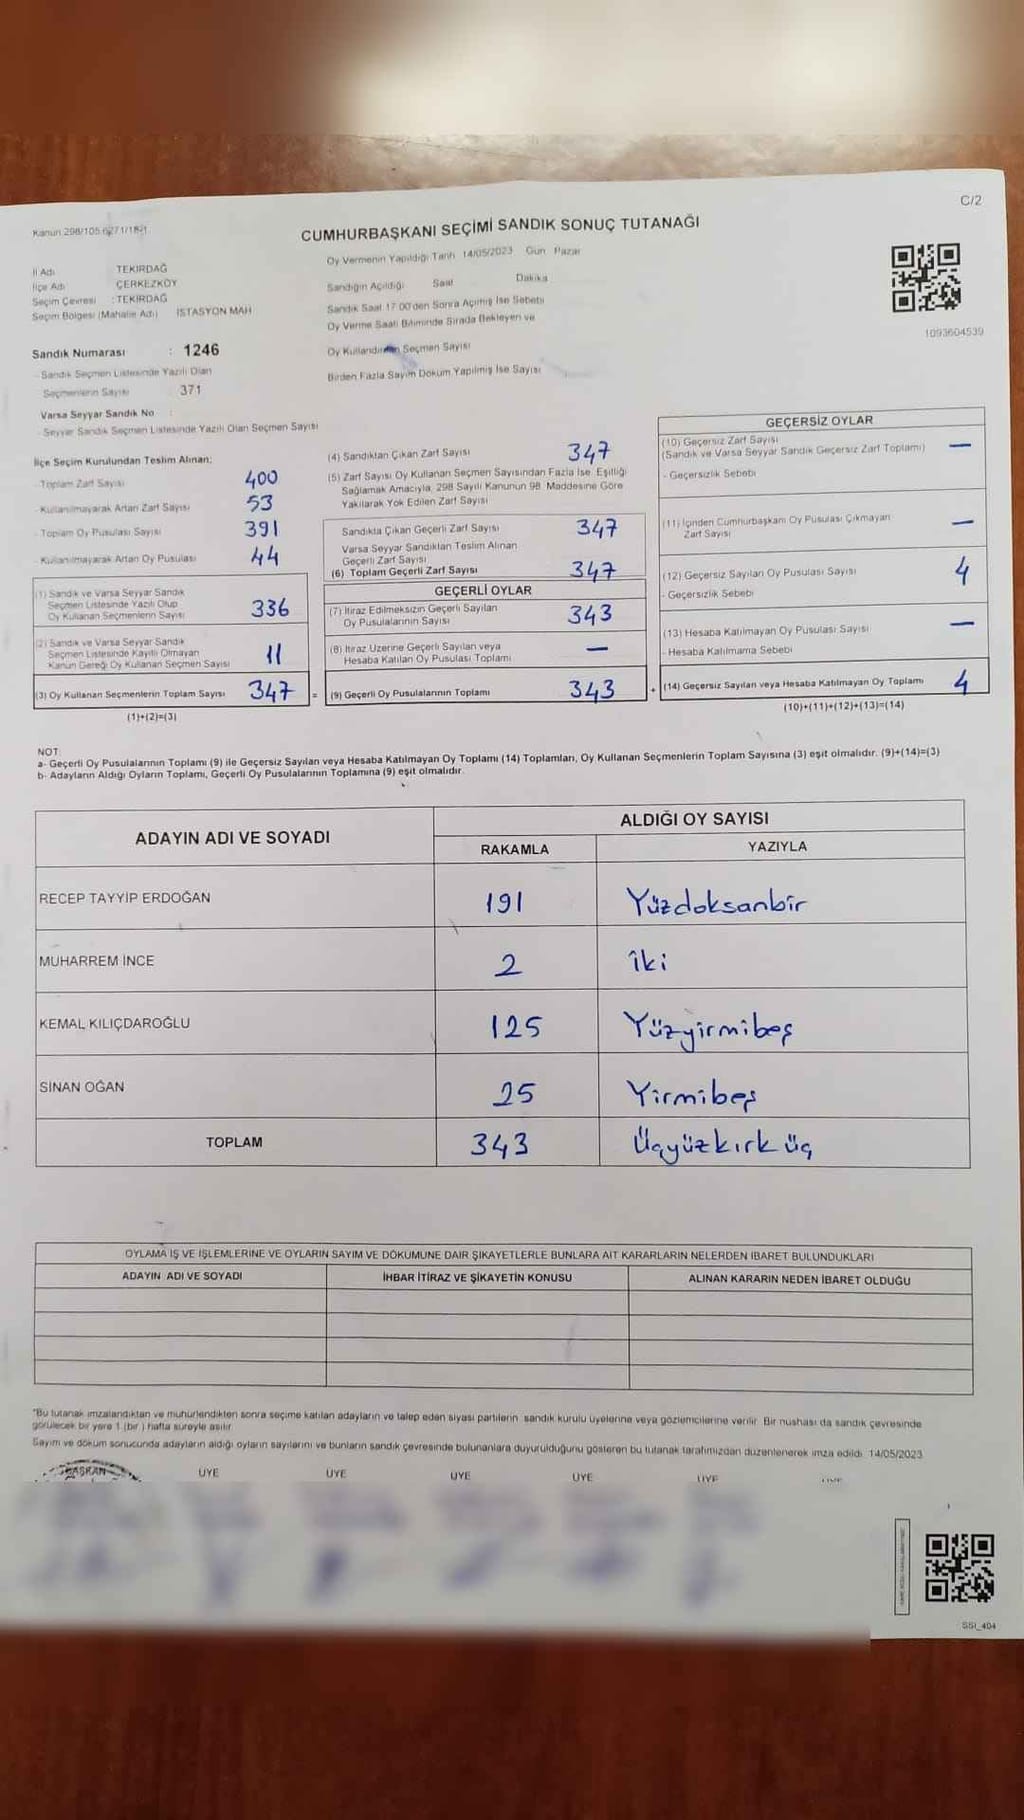 C/2
Kanun 298/105.6271/18-1
CUMHURBAŞKANI SEÇİMİ SANDIK SONUÇ TUTANAĞI
İl Adı : TEKİRDAĞ
İlçe Adı : ÇERKEZKÖY
Seçim Çevresi : TEKİRDAĞ
Seçim Bölgesi (Mahalle Adı) İSTASYON MAH
Sandık Numarası : 1246
- Sandık Seçmen Listesinde Yazılı Olan
Seçmenlerin Sayısı : 371
Varsa Seyyar Sandık No :
- Seyyar Sandık Seçmen Listesinde Yazılı Olan Seçmen Sayısı
Oy Vermenin Yapıldığı Tarih 14/05/2023 Gün Pazar
Sandığın Açıldığı Saat Dakika
Sandık Saat 17.00'den Sonra Açılmış İse Sebebi
Oy Verme Saati Bitiminde Sırada Bekleyen ve
Oy Kullandırılan Seçmen Sayısı
Birden Fazla Sayım Döküm Yapılmış İse Sayısı
1093604539
İlçe Seçim Kurulundan Teslim Alınan;
- Toplam Zarf Sayısı 400
- Kullanılmayarak Artan Zarf Sayısı 53
- Toplam Oy Pusulası Sayısı 391
- Kullanılmayarak Artan Oy Pusulası 44
(1) Sandık ve Varsa Seyyar Sandık
Seçmen Listesinde Yazılı Olup
Oy Kullanan Seçmenlerin Sayısı 336
(2) Sandık ve Varsa Seyyar Sandık
Seçmen Listesinde Kayıtlı Olmayan
Kanun Gereği Oy Kullanan Seçmen Sayısı 11
(3) Oy Kullanan Seçmenlerin Toplam Sayısı 347 =
(1)+(2)=(3)
(4) Sandıktan Çıkan Zarf Sayısı 347
(5) Zarf Sayısı Oy Kullanan Seçmen Sayısından Fazla İse, Eşitliği
Sağlamak Amacıyla, 298 Sayılı Kanunun 98. Maddesine Göre
Yakılarak Yok Edilen Zarf Sayısı
Sandıkta Çıkan Geçerli Zarf Sayısı 347
Varsa Seyyar Sandıktan Teslim Alınan
Geçerli Zarf Sayısı
(6) Toplam Geçerli Zarf Sayısı 347
GEÇERLİ OYLAR
(7) İtiraz Edilmeksizin Geçerli Sayılan
Oy Pusulalarının Sayısı 343
(8) İtiraz Üzerine Geçerli Sayılan veya
Hesaba Katılan Oy Pusulası Toplamı —
(9) Geçerli Oy Pusulalarının Toplamı 343 +
GEÇERSİZ OYLAR
(10) Geçersiz Zarf Sayısı —
(Sandık ve Varsa Seyyar Sandık Geçersiz Zarf Toplamı)
- Geçersizlik Sebebi
(11) İçinden Cumhurbaşkanı Oy Pusulası Çıkmayan
Zarf Sayısı —
(12) Geçersiz Sayılan Oy Pusulası Sayısı 4
- Geçersizlik Sebebi
(13) Hesaba Katılmayan Oy Pusulası Sayısı —
- Hesaba Katılmama Sebebi
(14) Geçersiz Sayılan veya Hesaba Katılmayan Oy Toplamı 4
(10)+(11)+(12)+(13)=(14)
NOT:
a- Geçerli Oy Pusulalarının Toplamı (9) ile Geçersiz Sayılan veya Hesaba Katılmayan Oy Toplamı (14) Toplamları, Oy Kullanan Seçmenlerin Toplam Sayısına (3) eşit olmalıdır. (9)+(14)=(3)
b- Adayların Aldığı Oyların Toplamı, Geçerli Oy Pusulalarının Toplamına (9) eşit olmalıdır.
ADAYIN ADI VE SOYADI ALDIĞI OY SAYISI
RAKAMLA YAZIYLA
RECEP TAYYİP ERDOĞAN 191 Yüzdoksanbir
MUHARREM İNCE 2 iki
KEMAL KILIÇDAROĞLU 125 Yüzyirmibeş
SİNAN OĞAN 25 Yirmibeş
TOPLAM 343 Üçyüzkırküç
OYLAMA İŞ VE İŞLEMLERİNE VE OYLARIN SAYIM VE DÖKÜMÜNE DAİR ŞİKAYETLERLE BUNLARA AİT KARARLARIN NELERDEN İBARET BULUNDUKLARI
ADAYIN ADI VE SOYADI İHBAR İTİRAZ VE ŞİKAYETİN KONUSU ALINAN KARARIN NEDEN İBARET OLDUĞU
"Bu tutanak imzalandıktan ve mühürlendikten sonra seçime katılan adayların ve talep eden siyasi partilerin sandık kurulu üyelerine veya gözlemcilerine verilir. Bir nüshası da sandık çevresinde
görülecek bir yere 1 (bir ) hafta süreyle asılır.
Sayım ve döküm sonucunda adayların aldığı oyların sayılarını ve bunların sandık çevresinde bulunanlara duyurulduğunu gösteren bu tutanak tarafımızdan düzenlenerek imza edildi. 14/05/2023
BAŞKAN ÜYE ÜYE ÜYE ÜYE ÜYE
SSİ_404